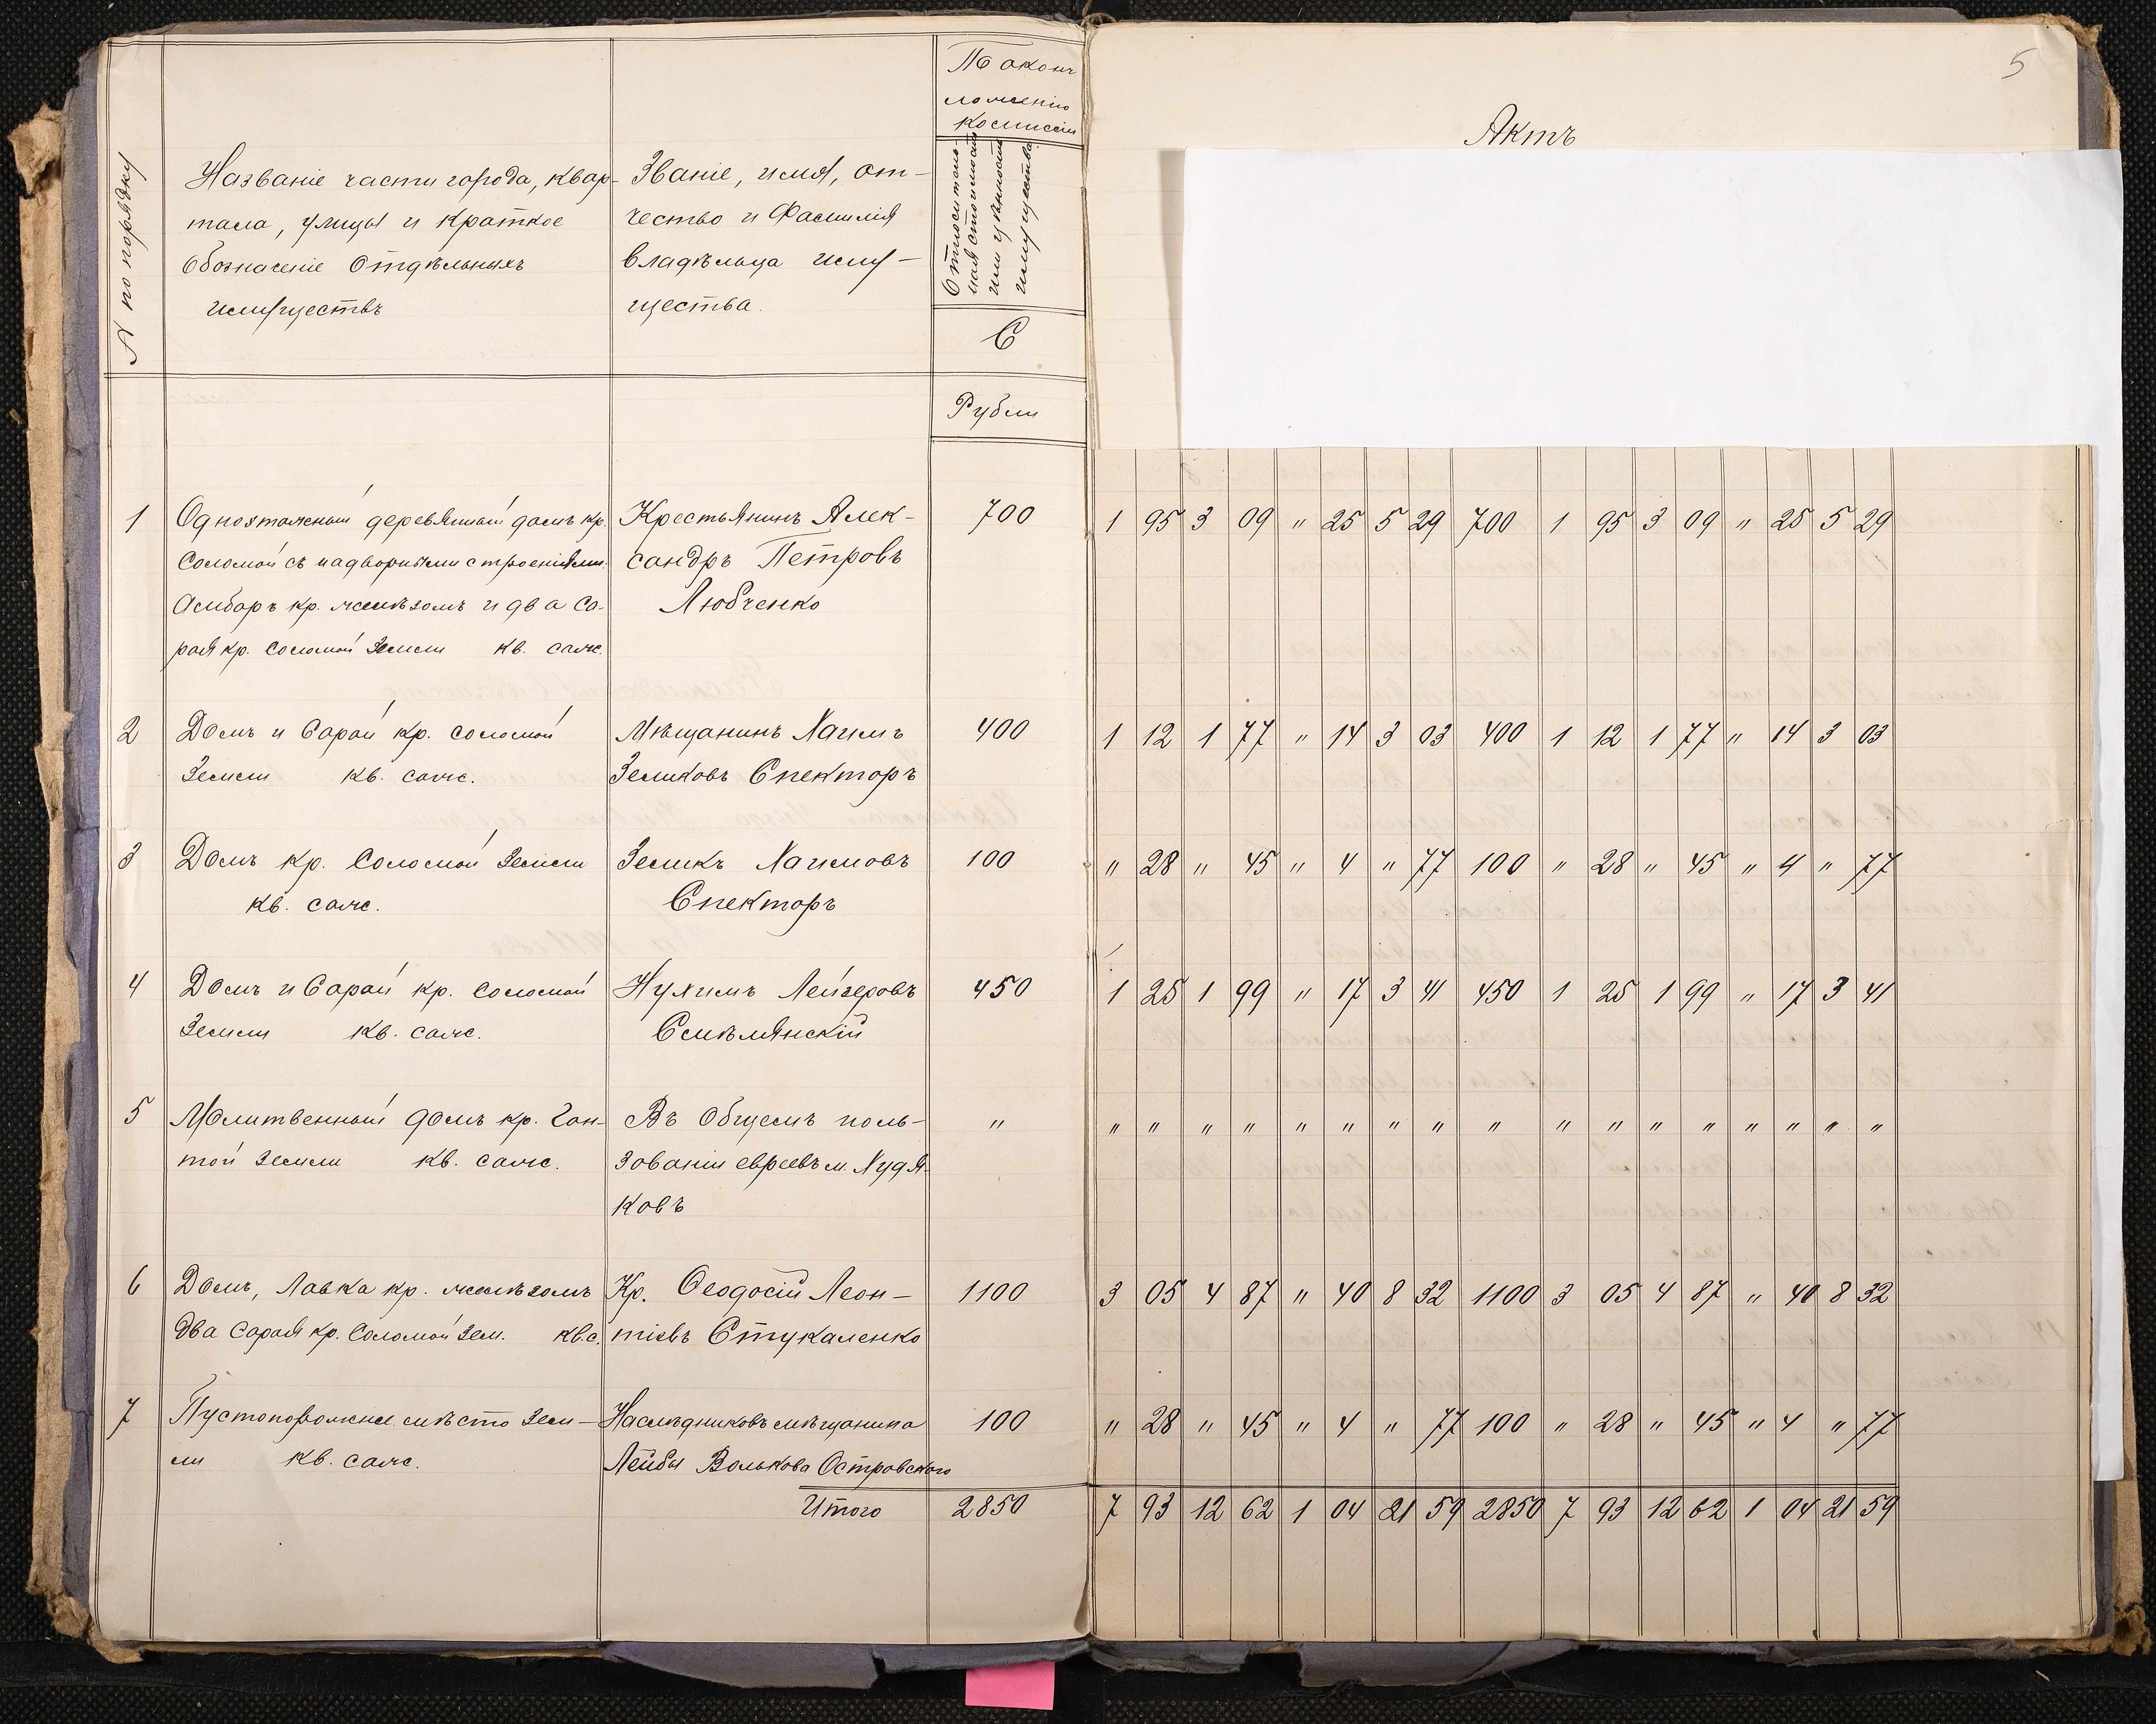 № по порядку
Названіе части города, квар-
тала, улицы и краткое
обозначеніе отдѣльныхъ
имуществъ
Званіе, имя, от-
чество и фамилія
владѣльца иму-
щества.
ложенію
комиссіи
Относитель-
ная стоимость
или цѣнность
имущества
С
Рубли
5
Актъ
1 Одноэтажный деревянный домъ кр. Крестьянинъ Алек- 700 1 95 3 09 " 25 5 29 700 1 95 3 09 " 25 5 29
соломой съ надворными строеніями. сандръ Петровъ
Амбаръ кр. желѣзомъ и два са- Любченко
рая кр. соломой Земли кв. саж.
2 Домъ и Сарай кр. соломой Мѣщанинъ Хаимъ 400 1 12 1 77 " 14 3 03 400 1 12 1 77 " 14 3 03
Земли кв. саж. Зеликовъ Спекторъ
3 Домъ кр. Соломой Земли Зеликъ Хаимовъ 100 " 28 " 45 " 4 " 77 100 " 28 " 45 " 4 " 77
кв. саж. Спекторъ
4 Домъ и Сарай кр. соломой Нухимъ Лейзеровъ 450 1 25 1 99 " 17 3 41 450 1 25 1 99 " 17 3 41
Земли кв. саж. Смѣлянскій
5 Молитвенный домъ кр. Гон- Въ общемъ поль- " " " " " " " " " " " " " " " " " "
той земли кв. саж. зованіи евреевъ м. Худя-
ковъ
6 Домъ, Лавка кр. желѣзомъ Кр. Ѳеодосій Леон- 1100 3 05 4 87 " 40 8 32 1100 3 05 4 87 " 40 8 32
два сарая кр. Соломой Зем. кв.с. тіевъ Стукаленко
7 Пустопорожнее мѣсто Зем- Наслѣдниковъ мѣщанина 100 " 28 " 45 " 4 " 77 100 " 28 " 45 " 4 " 77
ли кв. саж. Лейбы Волькова Островского
Итого 2850 7 93 12 62 1 04 21 59 2850 7 93 12 62 1 04 21 59